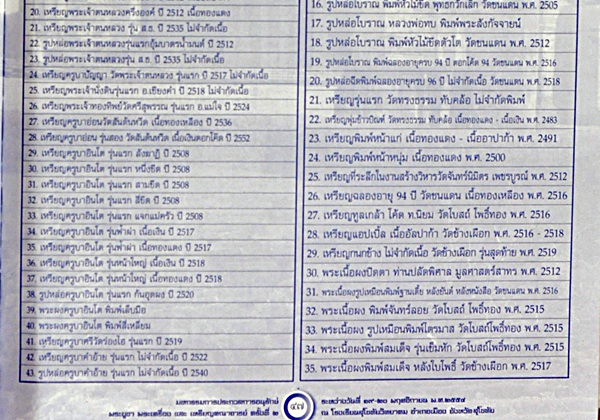 20. เหรียญพระเจ้าตนหลวงครึ่งองค์ ปี 2512 เนื้อทองแดง
21. เหรียญพระเจ้าตนหลวง รุ่น ส.ธ. ปี 2535 ไม่จำกัดเนื้อ
22. รูปหล่อพระเจ้าตนหลวงรุ่นแรกอุ้มบาตรน้ำมนต์ ปี 2512
23. รูปหล่อพระเจ้าตนหลวง รุ่น ส.ธ. ปี 2535 ไม่จำกัดเนื้อ
24. เหรียญครูบาปัญญา วัดพระเจ้าตนหลวง รุ่นแรก ปี 2517 ไม่จำกัดเนื้อ
25. เหรียญพระเจ้านั่งดินรุ่นแรก อ.เชียงคำ ปี 2518 ไม่จำกัดเนื้อ
26. เหรียญพระเจ้าทองทิพย์วัดศรีสุพรรณ รุ่นแรก อ.แม่ใจ ปี 2524
27. เหรียญครูบาอ่อนวัดสันต้นหวีด เนื้อทองเหลือง ปี 2536
28. เหรียญครูบาอ่อน รุ่นสอง วัดสันต้นหวีด เนื้อเงินตอกโค๊ต ปี 2552
29. เหรียญครูบาอินโต รุ่นแรก สังฆาฏิ ปี 2508
30. เหรียญครูบาอินโต รุ่นแรก หนึ่งขีด ปี 2508
31. เหรียญครูบาอินโต รุ่นแรก สามขีด ปี 2508
32. เหรียญครูบาอินโต รุ่นแรก สี่ขีด ปี 2508
33. เหรียญครูบาอินโต รุ่นแรก แจกแม่ครัว ปี 2508
34. เหรียญครูบาอินโต รุ่นฟ้าผ่า เนื้อเงิน ปี 2517
35. เหรียญครูบาอินโต รุ่นฟ้าผ่า เนื้อทองแดง ปี 2517
36. เหรียญครูบาอินโต รุ่นหน้าใหญ่ เนื้อเงิน ปี 2518
37. เหรียญครูบาอินโต รุ่นหน้าใหญ่ เนื้อทองแดง ปี 2518
38. รูปหล่อครูบาอินโต รุ่นแรก ก้นอุดผง ปี 2520
39. พระผงครูบาอินโต พิมพ์เล็บมือ
40. พระผงครูบาอินโต พิมพ์สี่เหลี่ยม
41. เหรียญครูบาศรีวัดร่องไฮ รุ่นแรก ปี 2519
42. เหรียญครูบาคำอ้าย รุ่นแรก ไม่จำกัดเนื้อ ปี 2522
43. รูปหล่อครูบาคำอ้าย รุ่นแรก ไม่จำกัดเนื้อ ปี 2540
16. รูปหล่อโบราณ พิมพ์หัวไม้ขีด พุทธกวักเล็ก วัดขนแดน พ.ศ. 2505
17. รูปหล่อโบราณ หลวงพ่อทบ พิมพ์พระสังกัจจายน์
18. รูปหล่อโบราณ พิมพ์หัวไม้ขีดตัวโต วัดขนแดน พ.ศ. 2512
19. รูปหล่อโบราณ พิมพ์ฉลองอายุครบ 94 ปี ตอกโค๊ต 94 วัดขนแดน พ.ศ. 2516
20. รูปหล่อฉีดพิมพ์ฉลองอายุครบ 96 ปี ไม่จำกัดเนื้อ วัดขนแดน พ.ศ. 2520
21. เหรียญรุ่นแรก วัดทรงธรรม ทับคล้อ ไม่จำกัดพิมพ์
22. เหรียญพุ่มข้าวบิณฑ์ วัดทรงธรรม ทับคล้อ เนื้อทองแดง - เนื้อเงิน พ.ศ. 2483
23. เหรียญพิมพ์หน้าแก่ เนื้อทองแดง - เนื้ออาปาก้า พ.ศ. 2491
24. เหรียญพิมพ์หน้าหนุ่ม เนื้อทองแดง พ.ศ. 2500
25. เหรียญที่ระลึกในงานสร้างวิหารวัดจันทร์นิมิตร เพชรบูรณ์ พ.ศ. 2512
26. เหรียญฉลองอายุ 94 ปี วัดขนแดน เนื้อทองเหลือง พ.ศ. 2516
27. เหรียญทูลเกล้า โค๊ต ท.นิยม วัดโบสถ์ โพธิ์ทอง พ.ศ. 2516
28. เหรียญแอปเปิ้ล เนื้ออัลปาก้า วัดช้างเผือก พ.ศ. 2516 - 2518
29. เหรียญกนกข้าง ไม่จำกัดเนื้อ วัดช้างเผือก รุ่นสุดท้าย พ.ศ. 2519
30. พระเนื้อผงปิดตา ท่านปลัดพิศาล มูลศาสตร์สาทร พ.ศ. 2512
31. พระเนื้อผงรูปเหมือนพิมพ์ฐานเตี้ย หลังยันต์ หลังหนังสือ วัดขนแดน พ.ศ. 2516
32. พระเนื้อผง พิมพ์จันทร์ลอย วัดโบสถ์ โพธิ์ทอง พ.ศ. 2515
33. พระเนื้อผง รูปเหมือนพิมพ์ไตรมาส วัดโบสถ์โพธิ์ทอง พ.ศ. 2515
34. พระเนื้อผงพิมพ์สมเด็จ รุ่นเข็มหัก วัดโบสถ์โพธิ์ทอง พ.ศ. 2515
35. พระเนื้อผงพิมพ์สมเด็จ หลังใบโพธิ์ วัดช้างเผือก พ.ศ. 2517
มหกรรมการประกวดการอนุรักษ์
พระบูชา พระเครื่อง และ เหรียญคณาจารย์ ครั้งที่ ๒
๔๗
ระหว่างวันที่ ๑๙-๒๐ พฤศจิกายน พ.ศ.๒๕๕๔
ณ โรงเรียนผู้ไถ่วิทยาคม อำเภอเมือง จังหวัด